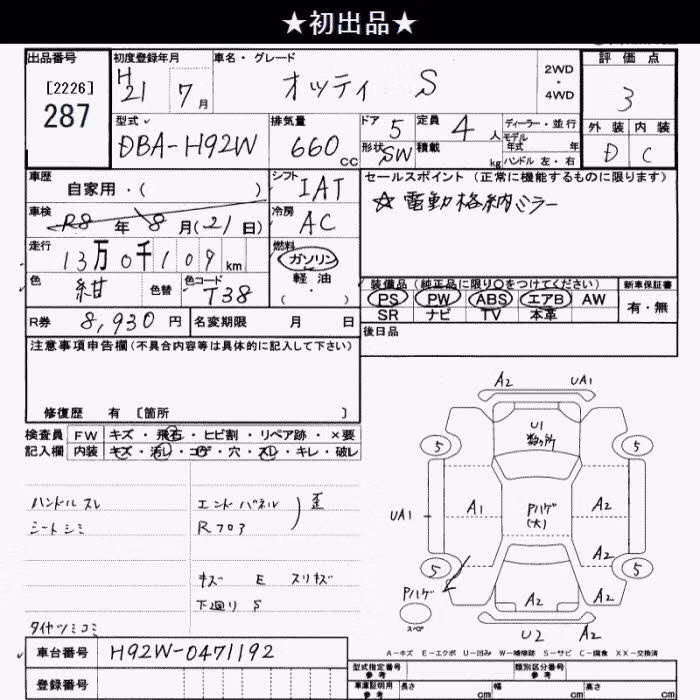 ★初出品★
出品番号
[2226]
287
初度登録年月
H21 7月
車名・グレード
オッティ S
2WD
・
4WD
評価点
3
外装 内装
D C
型式
DBA-H92W
排気量
660 CC
ドア 5
形状 SW
定員 4人
積載 kg
ディーラー・並行
モデル
年式 年
ハンドル 左・右
車歴
自家用・( )
シフト IAT
セールスポイント (正常に機能するものに限ります)
☆電動格納ミラー
車検
R8年 8月(21日)
冷房 AC
走行
13万0千109km
燃料
ガソリン
軽油
( ・ )
色
紺
色替
色コード
T38
装備品 (純正品に限り○をつけてください)
PS PW ABS エアB AW
SR ナビ TV 本革
新車保証書
有・無
R券 8,930円
名変期限 月 日
後日品
注意事項申告欄 (不具合内容等は具体的に記入して下さい)
修復歴 有 [箇所 ]
検査員 FW キズ・飛石・ヒビ割・リペア跡・×要
記入欄 内装 キズ・汚レ・コゲ・穴・スレ・キレ・破レ
ハンドル スレ
シートシミ
エンドパネル
Rフロア
歪
キズ E スリキズ
下廻り S
タイヤツミコミ
A2 UA1
U1
数ヶ所
5 5
A1 Pハゲ
(大) A2
UA1
A2
5 5
Pハゲ
スペア
A2 A2
U2 A2
A-キズ E-エクボ U-凹み W-補修跡 S-サビ C-腐食 XX-交換済
車台番号 H92W-0471192
登録番号
型式指定番号
参考
類別区分番号
参考
車庫証明用
参考
長さ cm 幅 cm 高さ cm